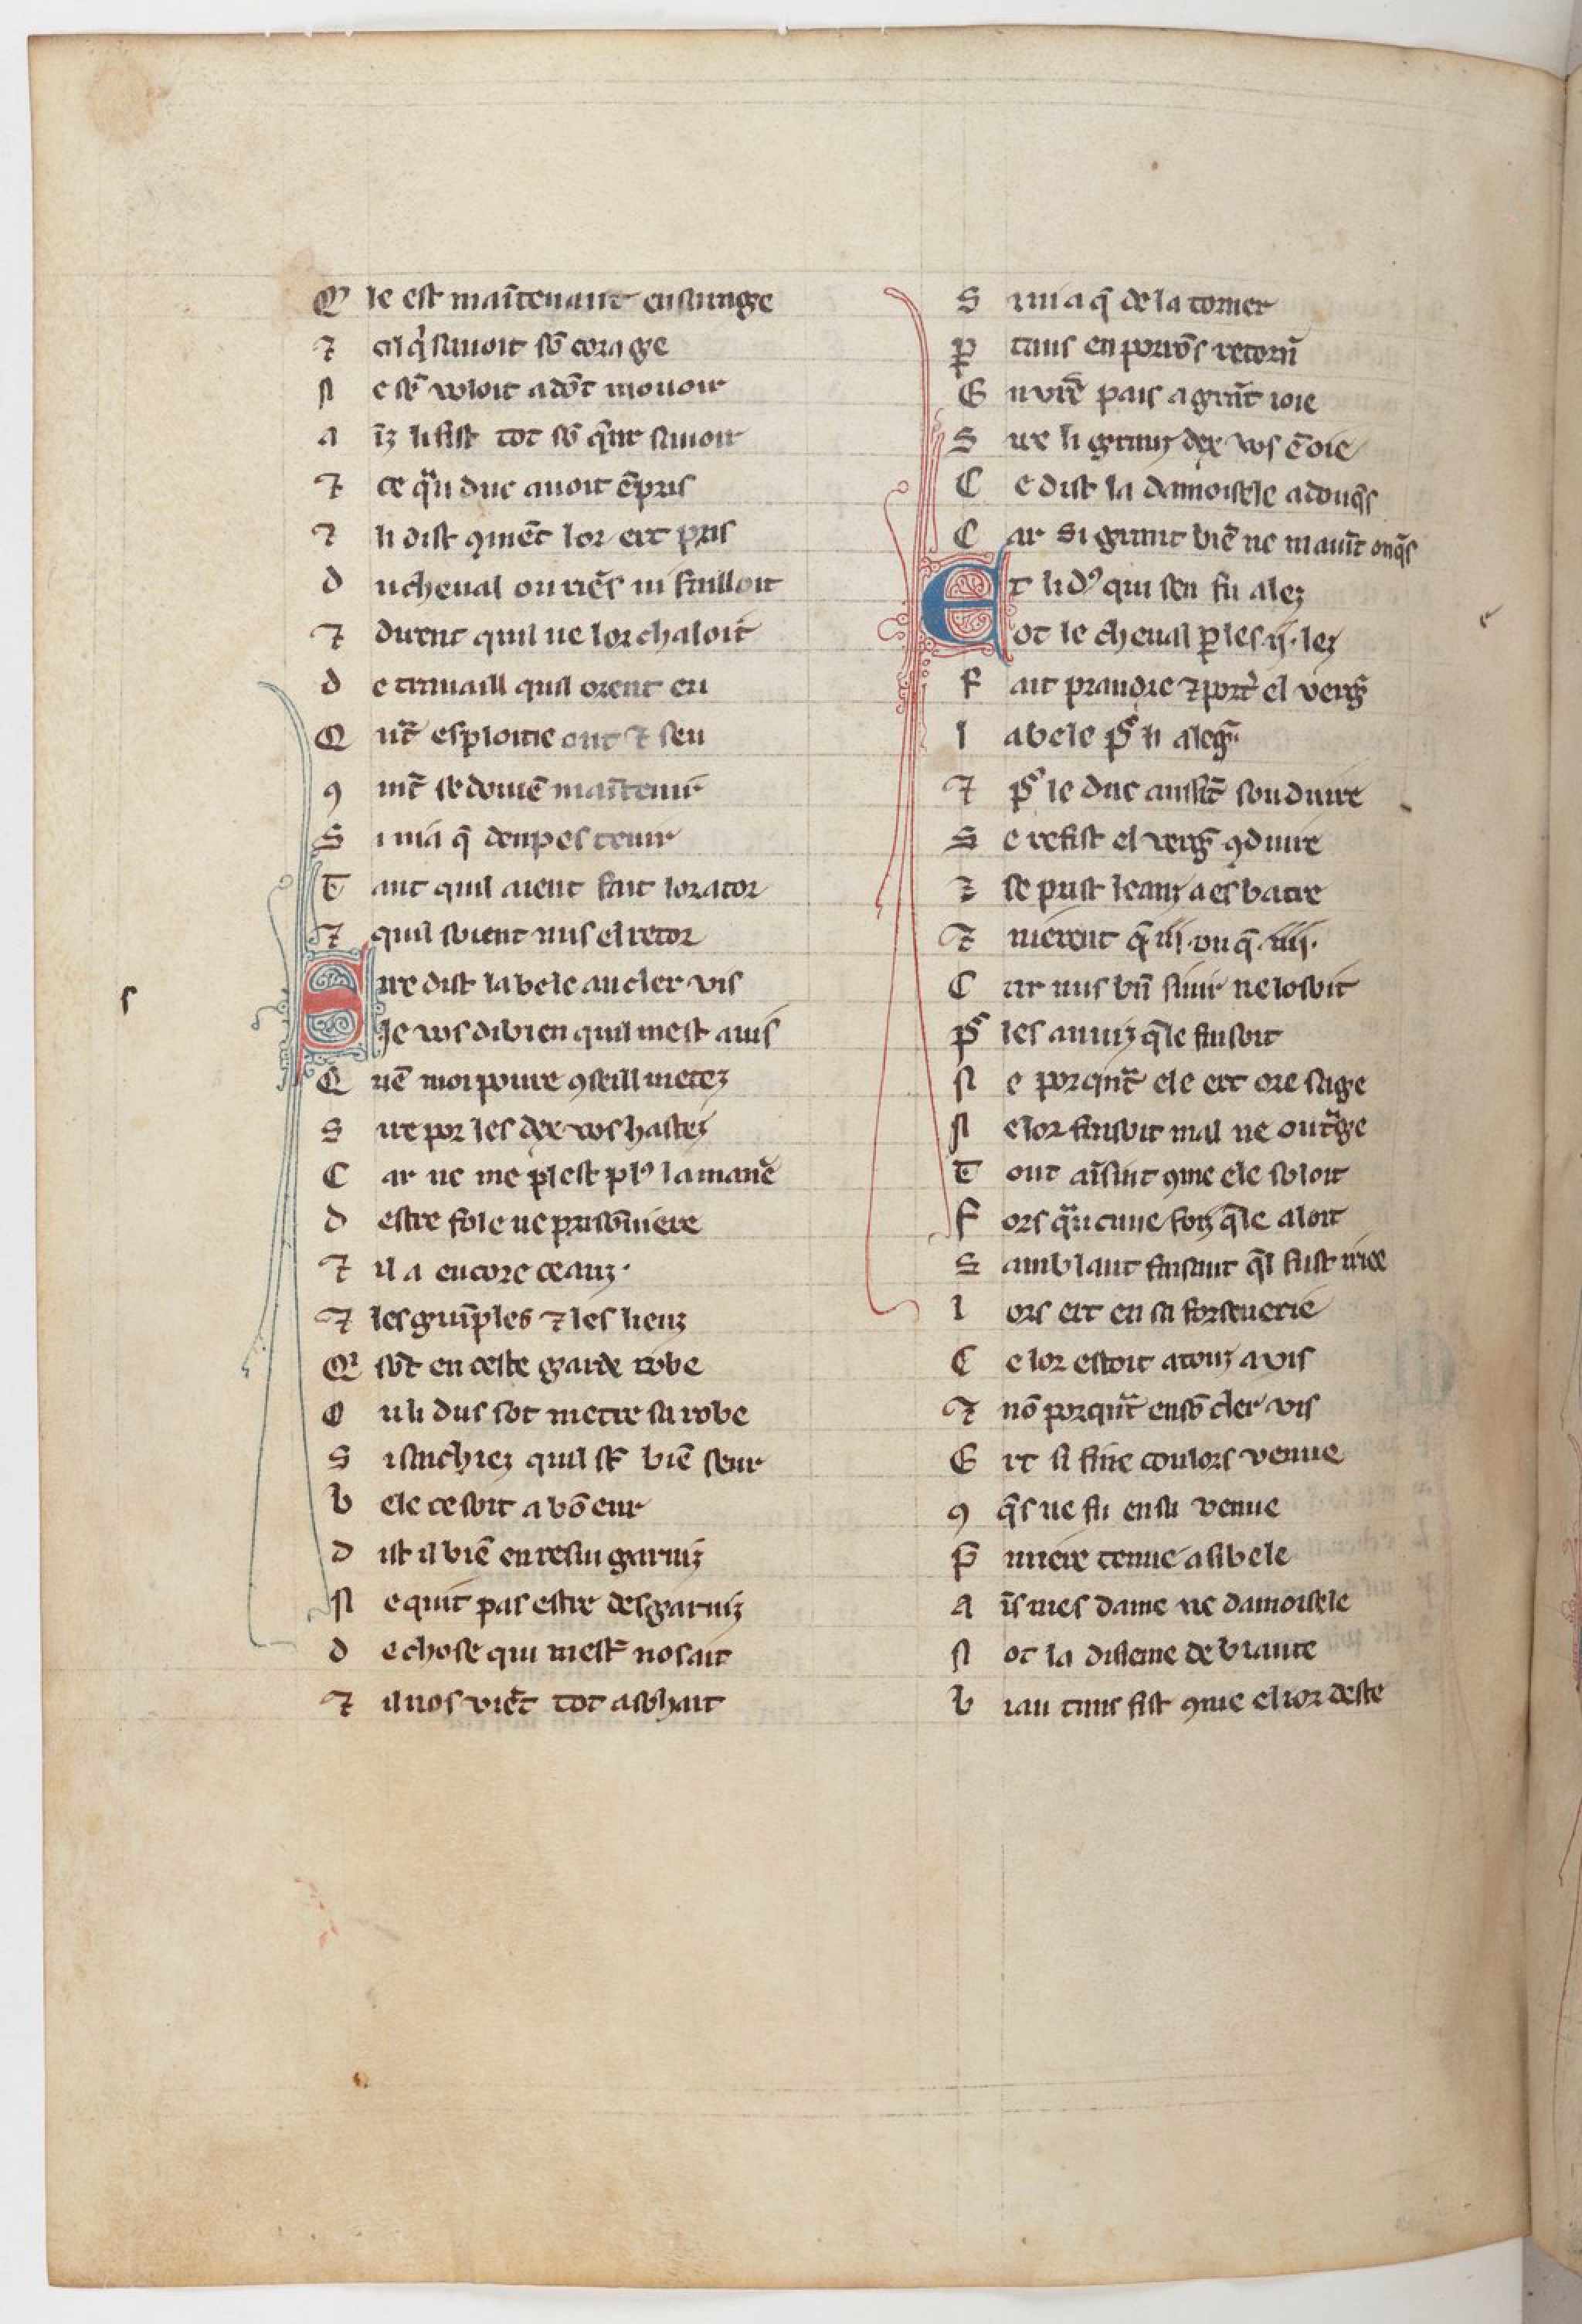 Q le est maītenant ensauage
⁊ cil q̇ sauoit sō corage
N e sē voloit adōt mouoir
A īz li fist tot sō q̄ur sauoir
⁊ ce q̄u duc auoit ēpris
⁊ li dist ꝯmēt lor ert pris
D u cheual ou riēs ni failloit
⁊ dirent quil ne lor chaloit
D e trauaill quil orent eu
Q nt̄ esploitie ont ⁊ seu
ꝯ mt̄ se doiuē maītenir
S i nia q̄ denpes tenir
T ant quil aient fait lor ator
⁊ quil soient mis el retor
S ire dist la bele au cler vis
Je vos di bien quil mest auis
Q uē moi poure ꝯseill metez
S ire por les dex vos hastez
C ar ne me plest pl⁹ la manē
D estre fole ne prisōniere
⁊ il a encore ceanz·
⁊ les guīples ⁊ les lienz
Q sōt en ceste garde robe
O u li dus sot metre sa robe
S i sachiez quil st̄ biē seur
B ele ce soit a bō eur
D ist il biē en resui garniz
N e quit pas estre desgarniz
D e chose qui mest nosait
⁊ il nos viēt tot a sohait
S i nia q̄ de la torner
P tans en porrōs retorn̄
E n vrē pais a grāt ioie
S ire li granz dex vos ēoie
C e dist la damoisele adonq̄s
C ar si grant biē ne mauīt onq̄s
Et li d⁹ qui sen fu alez
Ot le cheual ꝑ les ·ij· lez
F ait prandre ⁊ port̄ el verḡ
L a bele p̄ li aleḡ
⁊ p̄ le duc ausit̄ souduire
S e refist el verḡ ꝯduire
⁊ se prist leanz a esbatre
⁊ nierent q̄ ·iij· ou q̄ ·iiij·
C ar nus bn̄ siuir ne losoit
P̄ les anuiz q̄le faisoit
N e porqnt̄ ele ert ore sage
N e lor faisoit mal ne outᵃge
T out aīsint ꝯme ele soloit
F ors q̄ucune foiz q̄le aloit
S amblant faisant q̄l fust iriee
L ors ert en sa forsenerie
C e lor estoit a touz auis
⁊ nō porqnt̄ en sō cler vis
E rt si fine coulors venue
ꝯ q̄s ne fu en sa venue
P̄ miere tenue a si bele
A īs mes dame ne damoisele
N ot la disieme de biaute
B iau tans fist ꝯme el ior deste